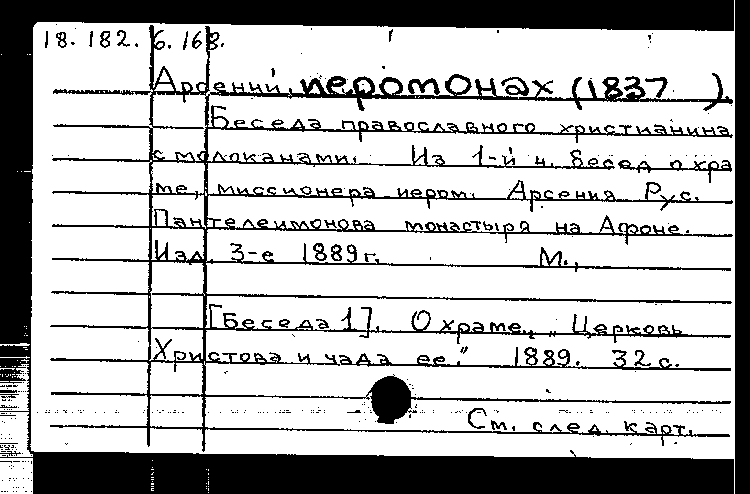 18. 182. 6. 168.
Арсений, иеромонах (1837 ).
Беседа православного христианина
с молоканами. Из 1-й ч. бесед о хра
ме, миссионера иером. Арсения Рус.
Пантелеимонова монастыря на Афоне.
Изд. 3-е 1889 г. М.,
[Беседа 1]. О храме. „Церковь
Христова и чада ее." 1889. 32 с.
См. след. карт.